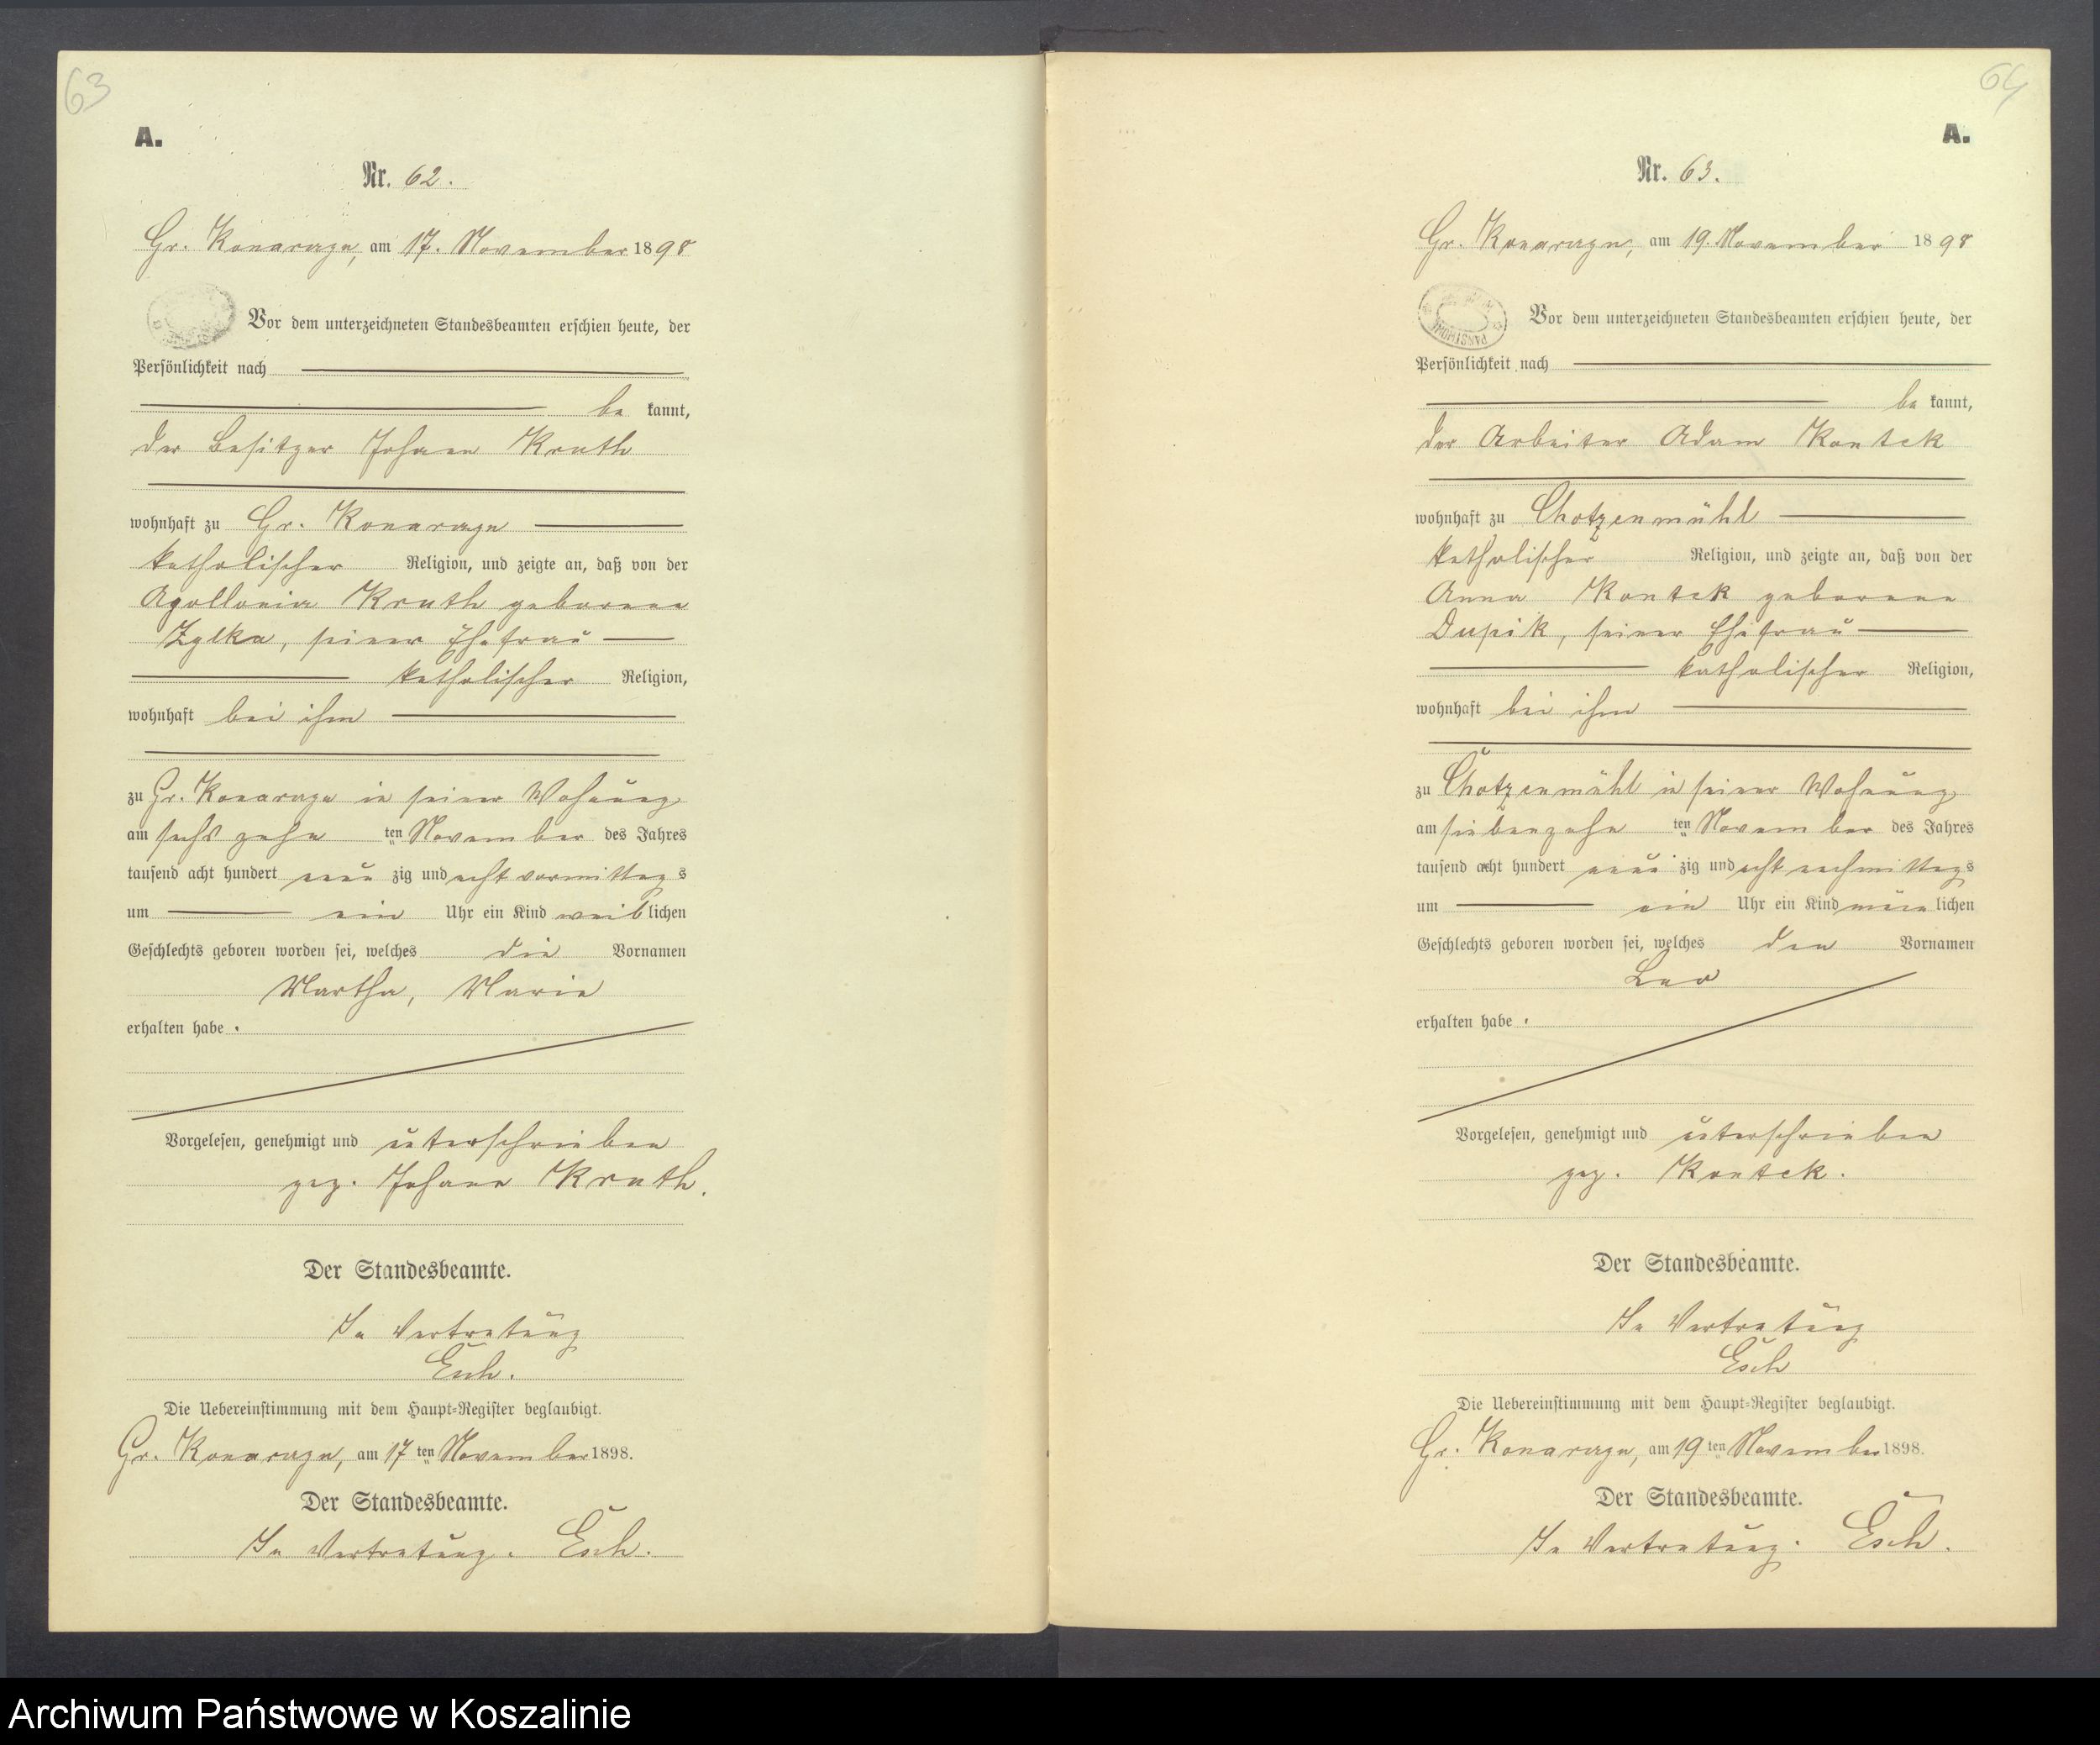 63
A.
Nr. 62.
Gr. Konarczyn, am 17. November 1898
Vor dem unterzeichneten Standesbeamten erschien heute, der
Persönlichkeit nach
be kannt,
der Besitzer Johann Kruth
wohnhaft zu Gr. Konarczyn
katholischer Religion, und zeigte an, daß von der
Apollonia Kruth geborene
Zylka, seiner Ehefrau
katholischer Religion,
wohnhaft bei ihm
zu Gr. Konarczyn in seiner Wohnung
am sechszehn ten November des Jahres
tausend acht hundert neun zig und acht vormittag s
um ein Uhr ein Kind weib lichen
Geschlechts geboren worden sei, welches die Vornamen
Martha, Marie
erhalten habe.
Vorgelesen, genehmigt und unterschrieben
gez. Johann Kruth.
Der Standesbeamte.
In Vertretung
Esch.
Die Uebereinstimmung mit dem Haupt-Register beglaubigt.
Gr. Konarczyn, am 17 ten November 1898.
Der Standesbeamte.
In Vertretung. Esch.
64
A.
Nr. 63.
Gr. Konarczyn, am 19. November 1898
Vor dem unterzeichneten Standesbeamten erschien heute, der
Persönlichkeit nach
be kannt,
der Arbeiter Adam Kontek
wohnhaft zu Chotzenmühl
katholischer Religion, und zeigte an, daß von der
Anna Kontek geborene
Dupik, seiner Ehefrau
katholischer Religion,
wohnhaft bei ihm
zu Chotzenmühl in seiner Wohnung
am siebenzehn ten November des Jahres
tausend acht hundert neun zig und acht nachmittag s
um ein Uhr ein Kind männ lichen
Geschlechts geboren worden sei, welches den Vornamen
Leo
erhalten habe.
Vorgelesen, genehmigt und unterschrieben
gez. Kontek.
Der Standesbeamte.
In Vertretung
Esch
Die Uebereinstimmung mit dem Haupt-Register beglaubigt.
Gr. Konarczyn, am 19 ten November 1898.
Der Standesbeamte.
In Vertretung. Esch.
Archiwum Państwowe w Koszalinie